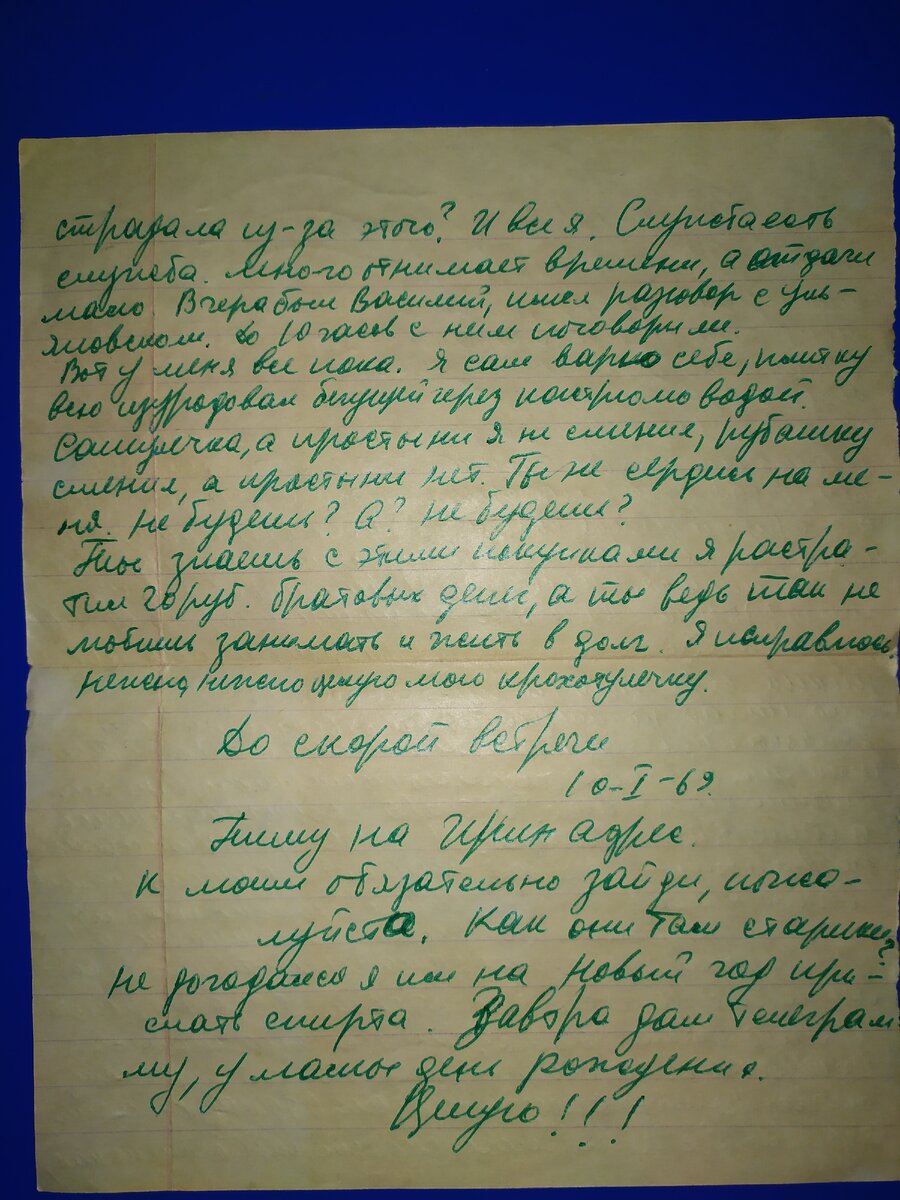 страдала из-за этого? И вся. Служба есть
служба. Много отнимает времени, а отдачи
мало Вчера был Василий, имел разговор с Уль-
яновском. До 10 часов с ним поговорили.
Вот у меня все пока. Я сам варю себе, плитку
всю изуродовал бегущей через кастрюлю водой.
а простыни я не сменил, рубашку
сменил, а простыни нет. Ты не сердись на ме-
ня. Не будешь? А? Не будешь?
Ты знаешь с этими покупками я растра-
тил 20 руб. братовых денег, а ты ведь так не
любишь занимать и жить в долг. Я исправлюсь
нежно, нежно целую мою крохотулечку.
До скорой встречи
10-I-69.
Пишу на Ирин адрес.
К моим обязательно зайди, пожа-
луйста. Как они там старики?
Не догадался я им на Новый год при-
слать спирта. Завтра дам телеграм-
му, у мамы день рождения.
Целую!!!